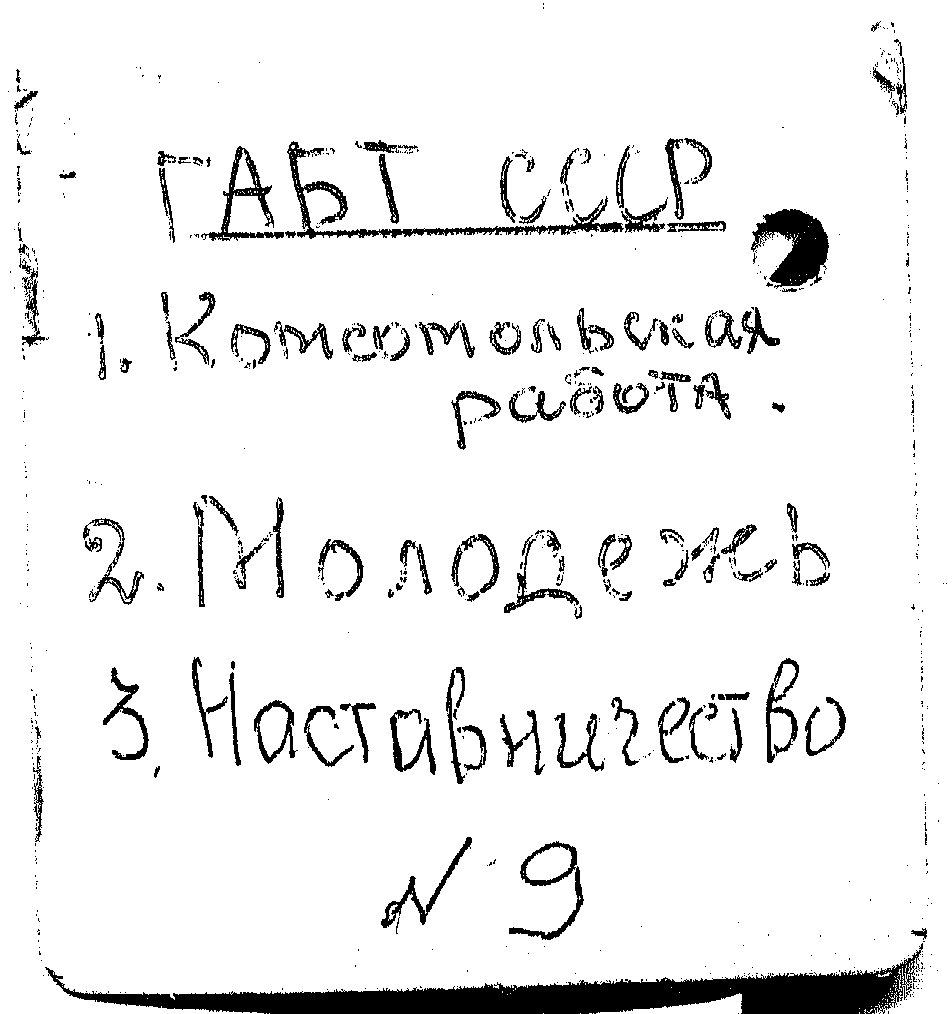 ГАБТ СССР
1. Комсомольская
работа.
2. Молодежь
3. Наставничество
N 9